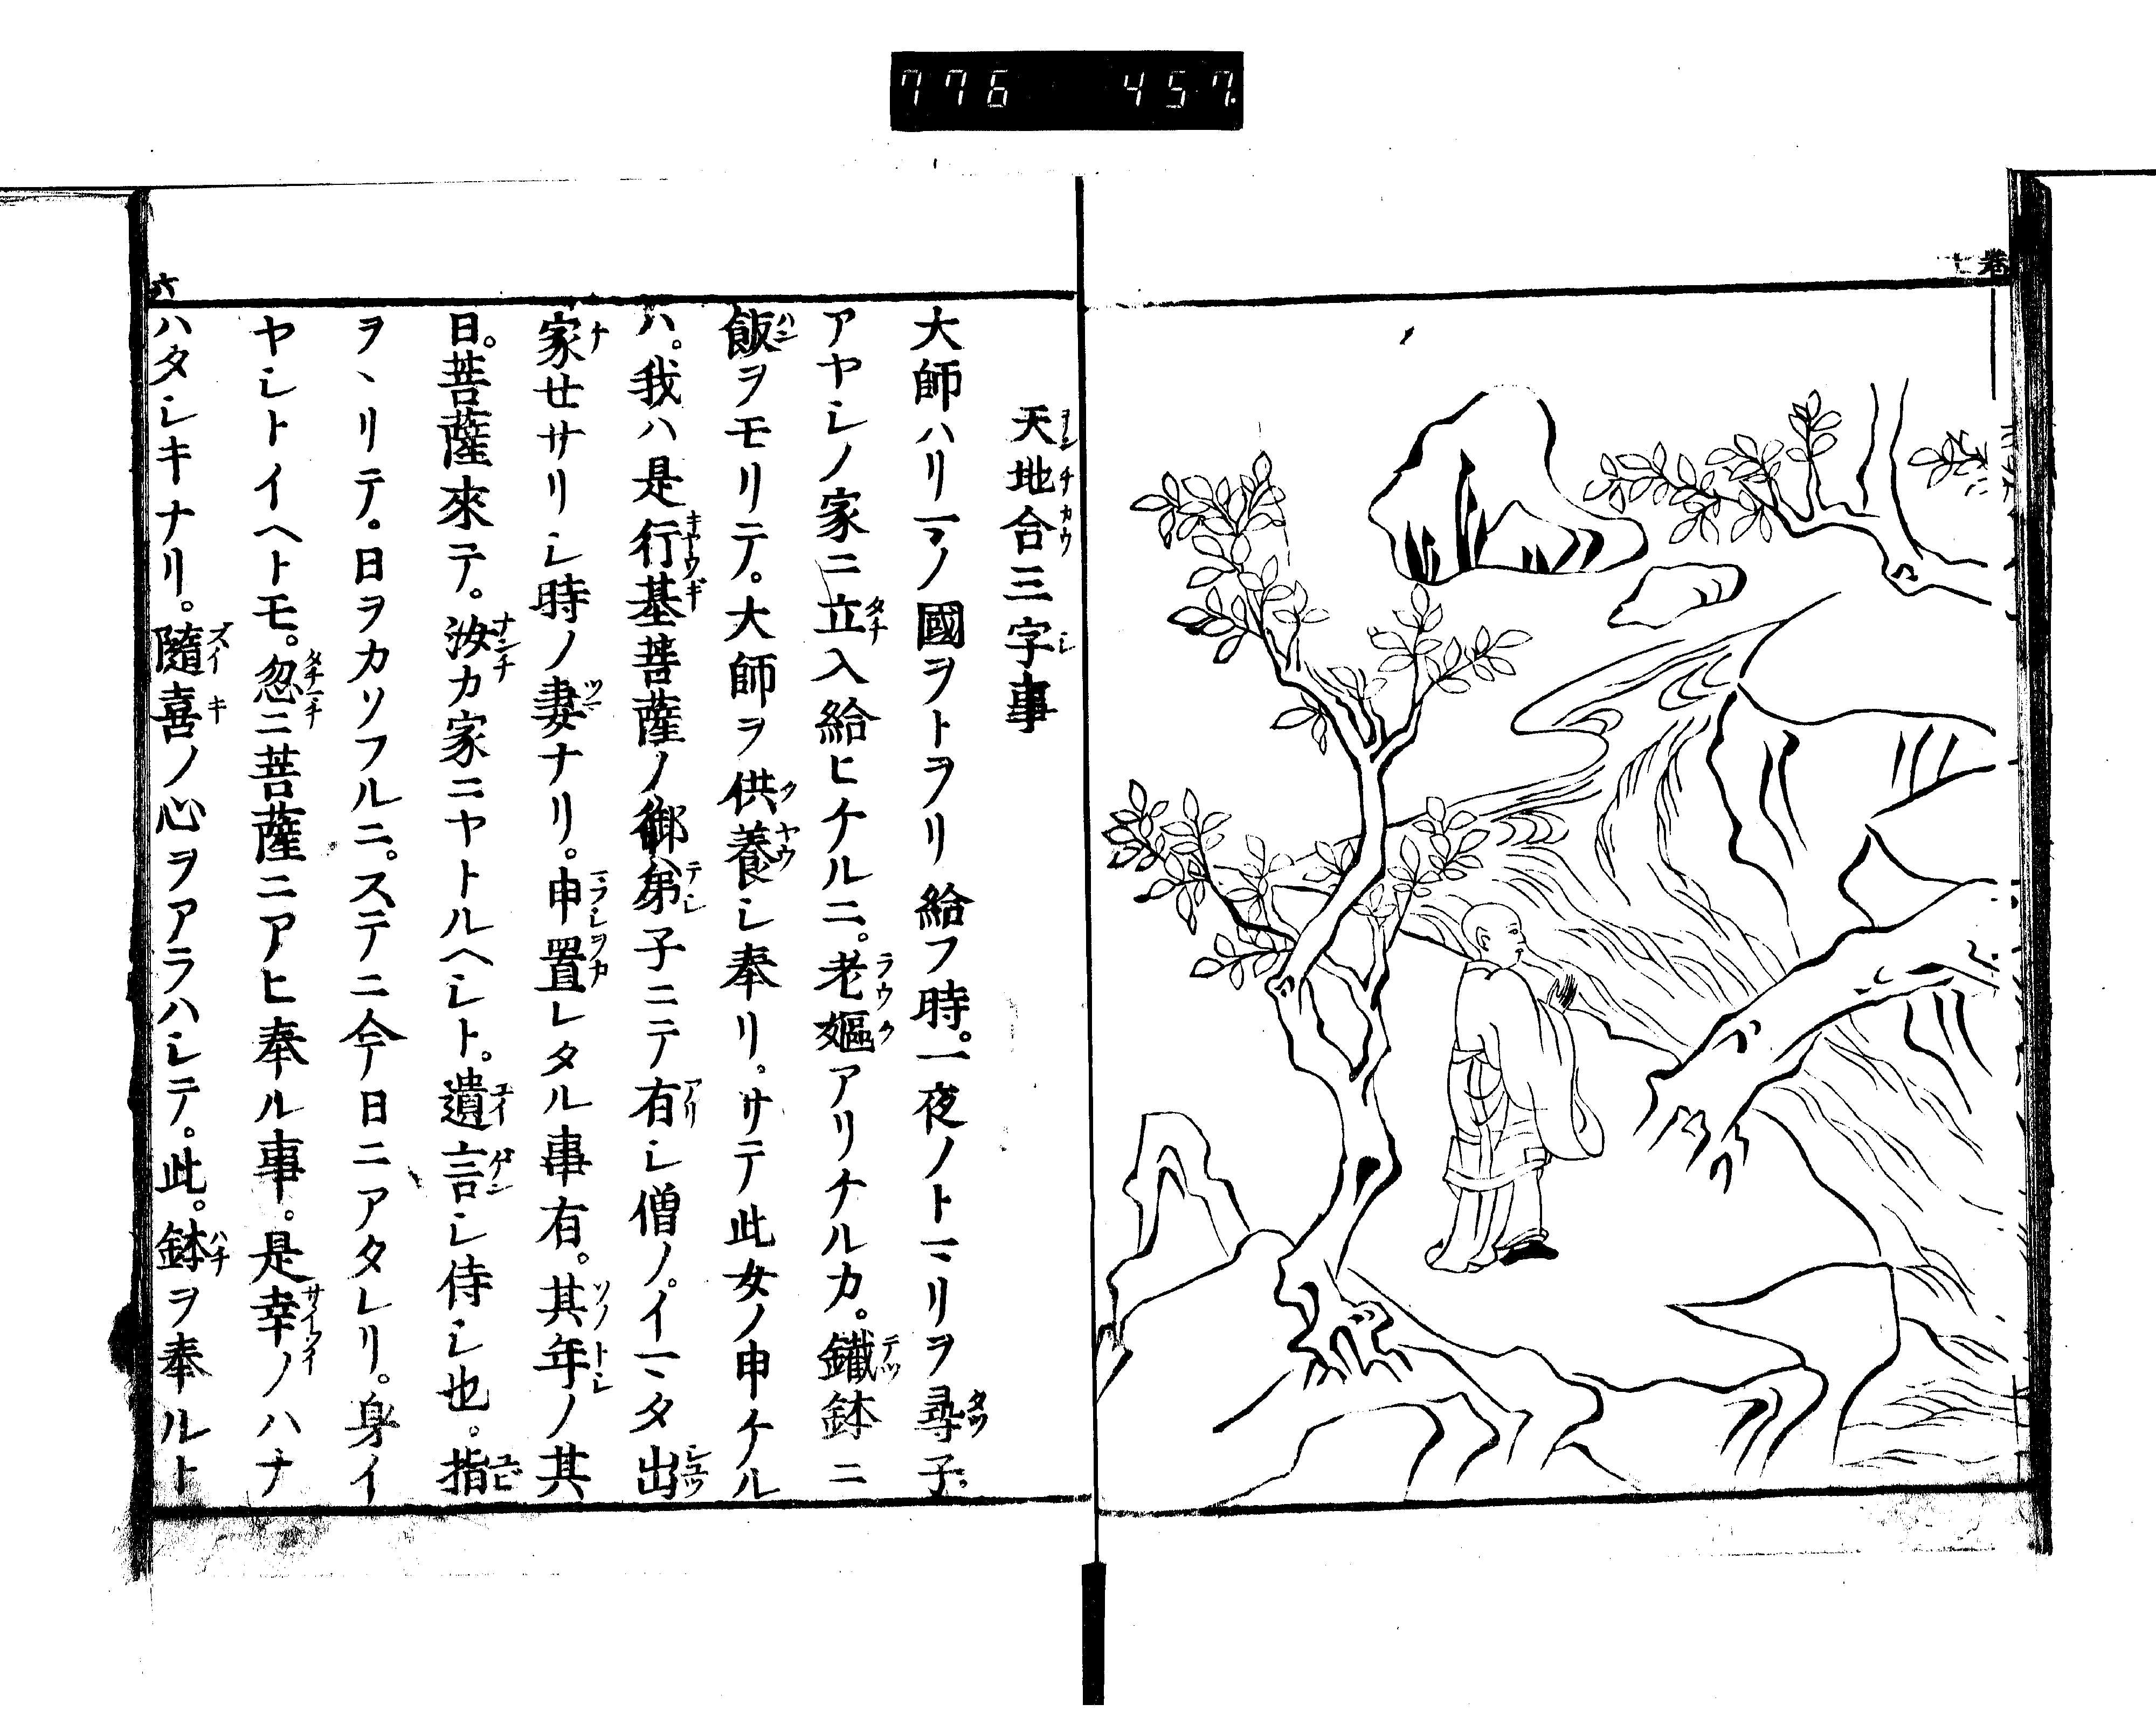 776 457
巻
天地合三字事
大師ハリマノ國ヲトヲリ給フ時。一夜ノトマリヲ尋子。
アヤシノ家ニ立入給ヒケルニ。老嫗アリケルカ。鐵鉢ニ
飯ヲモリテ。大師ヲ供養シ奉リ。サテ此女ノ申ケル
ハ。我ハ是行基菩薩ノ御弟子ニテ有シ僧ノ。イマタ出
家セサリシ時ノ妻ナリ。申置レタル事有。其年ノ其
日。菩薩來テ。汝カ家ニヤトルヘシト。遺言シ侍シ也。指
ヲヽリテ。日ヲカソフルニ。ステニ今日ニアタレリ。身イ
ヤシトイヘトモ。忽ニ菩薩ニアヒ奉ル事。是幸ノハナ
ハタシキナリ。隨喜ノ心ヲアラハシテ。此。鉢ヲ奉ルト
六